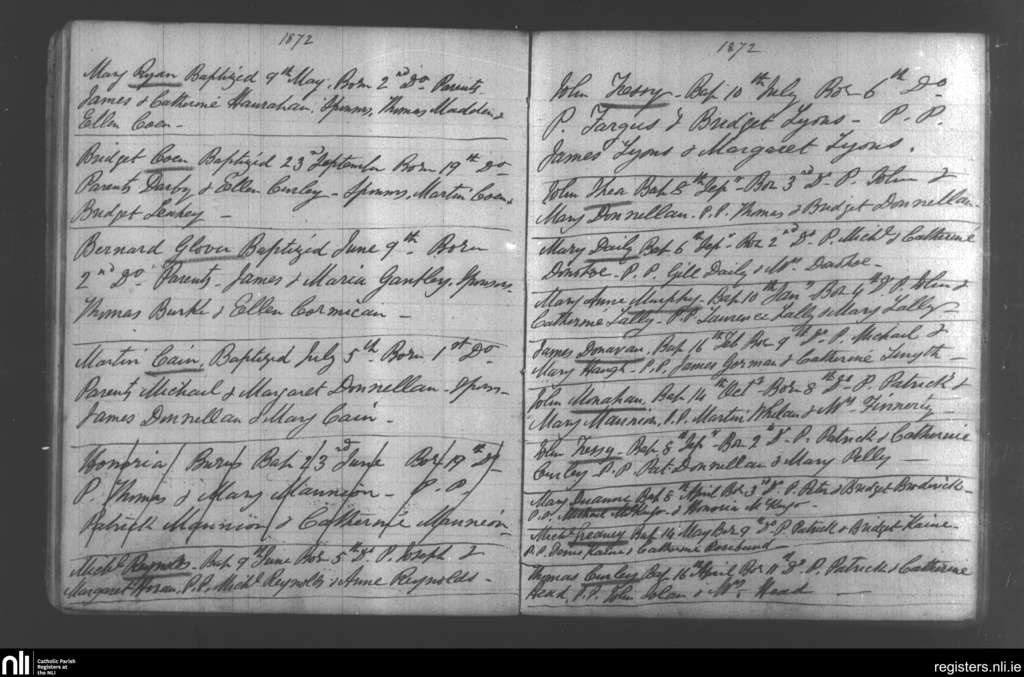 1872
Mary Ryan Baptized 9th May. Born 2nd Do Parents
James & Catherine Hanrahan, Sponsors, Thomas Madden &
Ellen Coen -
Bridget Coen Baptized 23rd September Born 19th Do
Parents Darby & Ellen Curley - Sponsors, Martin Coen &
Bridget
Bernard Glover Baptized June 9th. Born
2nd Do Parents James & Maria Gantley, Sponsors,
Thomas Burke & Ellen Cormican -
Martin Cain, Baptized July 5th Born 1st Do
Parents Michael & Margaret Donnellan. Spons-
James Donnellan & Mary Cain -
Honoria Burns Bap 23rd June Bor 19th Do
P. Thomas & Mary Mannion - P. P.
Patrick Mannion & Catherine Mannion
Michl Reynolds. Bap 9th June Bor 5th Do P. Joseph &
Margaret Horan. P.P. Michl Reynolds & Anne Reynolds -
1872
John Fessy - Bap 10th July Bor 6th Do
P. Fargus & Bridget Lyons - P. P.
James Lyons & Margaret Lyons.
John Bap 8th Sepr - Bor 3rd Do P. John &
Mary Donnellan. P.P. Thomas & Bridget Donnellan
Mary Daily Bap 6th Sepr - Bor 2nd Do P. Michl & Catherine
Donohoe - P. P. Gill Daily & Mrs
Mary Anne Murphy - Bap 10th Jany Bor 4th Do P. John &
Catherine Lally - P.P. Laurence Lally & Mary Lally -
James Donavan, Bap 16th Feb Bor 9th Do. P. Michael &
Mary Haugh - P.P. James Gorman & Catherine Smyth -
John Monahan, Bap 14th Oct Bor 8th Do - P. Patrick &
Mary Mannion, P.P. Martin Whelan & Mrs Finnerty -
John Fessy - Bap 5th Sepr - Bor 2nd Do - P. Patrick & Catherine
Curley - P.P. Pat Donnellan & Mary Pelly -
Mary Bap 8th April Bor 3rd Do P. Peter & Bridget Broderick -
P.P. Michael McHugo & Honoria McHugo -
Michl Greaney Bap 14 May Bor 9th Do P. Patrick & Bridget Kaine -
P.P. Denis & Catherine
Thomas Curley Bap 16th April Bor 11th Do P. Patrick & Catherine
Head, P.P. John & Mrs Head -
nli
Catholic Parish
Registers at
the NLI
registers.nli.ie